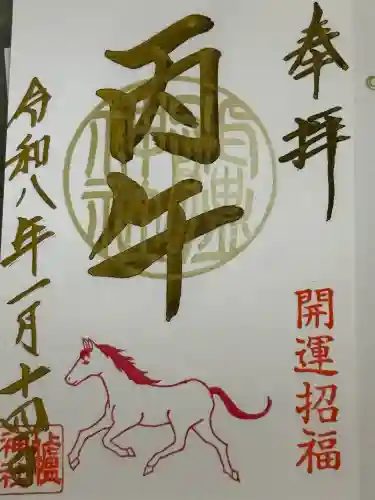 奉拝
開運招福
丙午
令和八年一月十四日